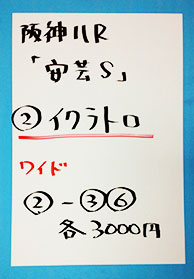 阪神11R
「安芸S」
②イクラトロ
ワイド
②-③⑥
各3000円